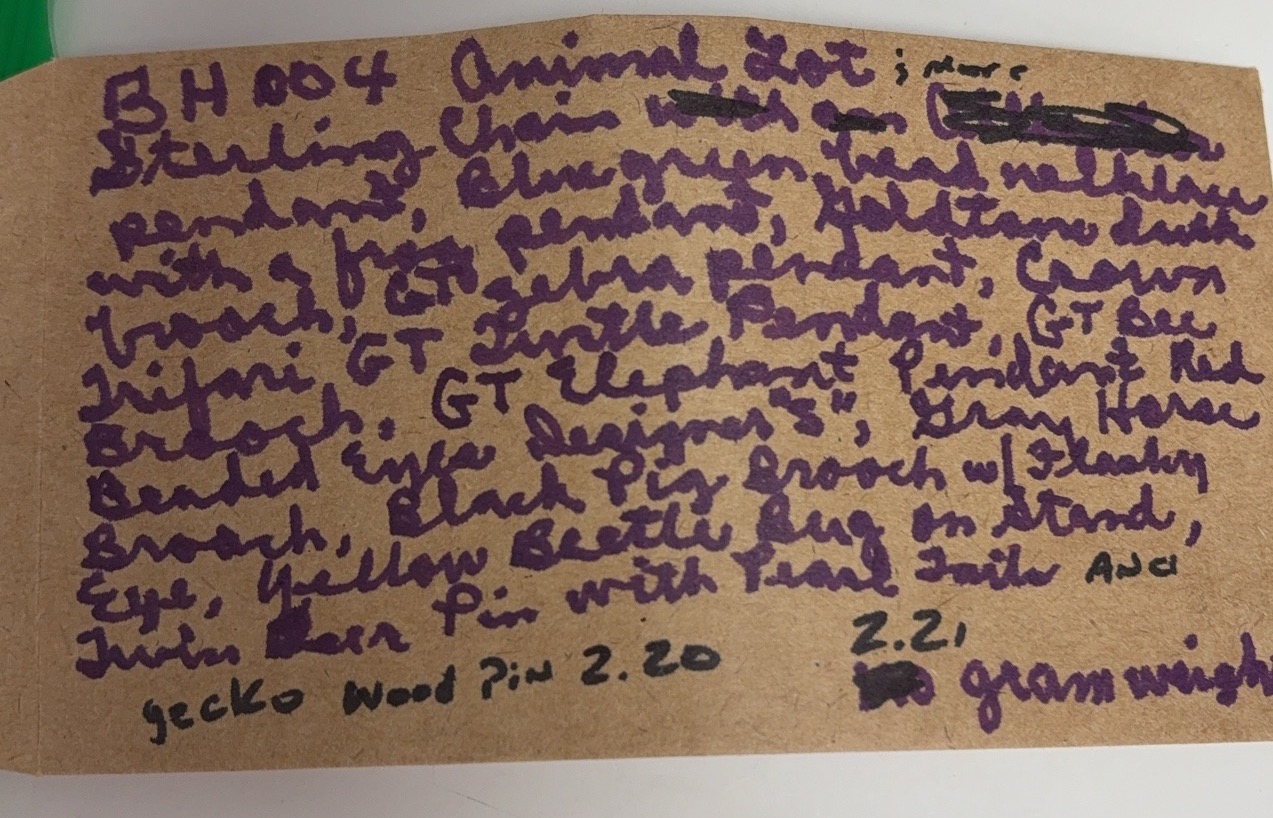 BH 004 Animal Lot ; More
Sterling Chain with an
pendant, Blue green bead necklace
with a frog pendant, Goldtone duck
brooch, GT zebra pendant, Crown
Trifari GT Turtle Pendant, GT Bee
Brooch, GT Elephant Pendant Red
Beaded Eyes Designer "S", Gray Horse
Brooch, Black Pig Brooch w/ Flashy
Eye, Yellow Beetle Bug on Stand,
Twin Deer Pin with Pearl Tails And
gecko Wood Pin 2.20 2.21
gram weigh